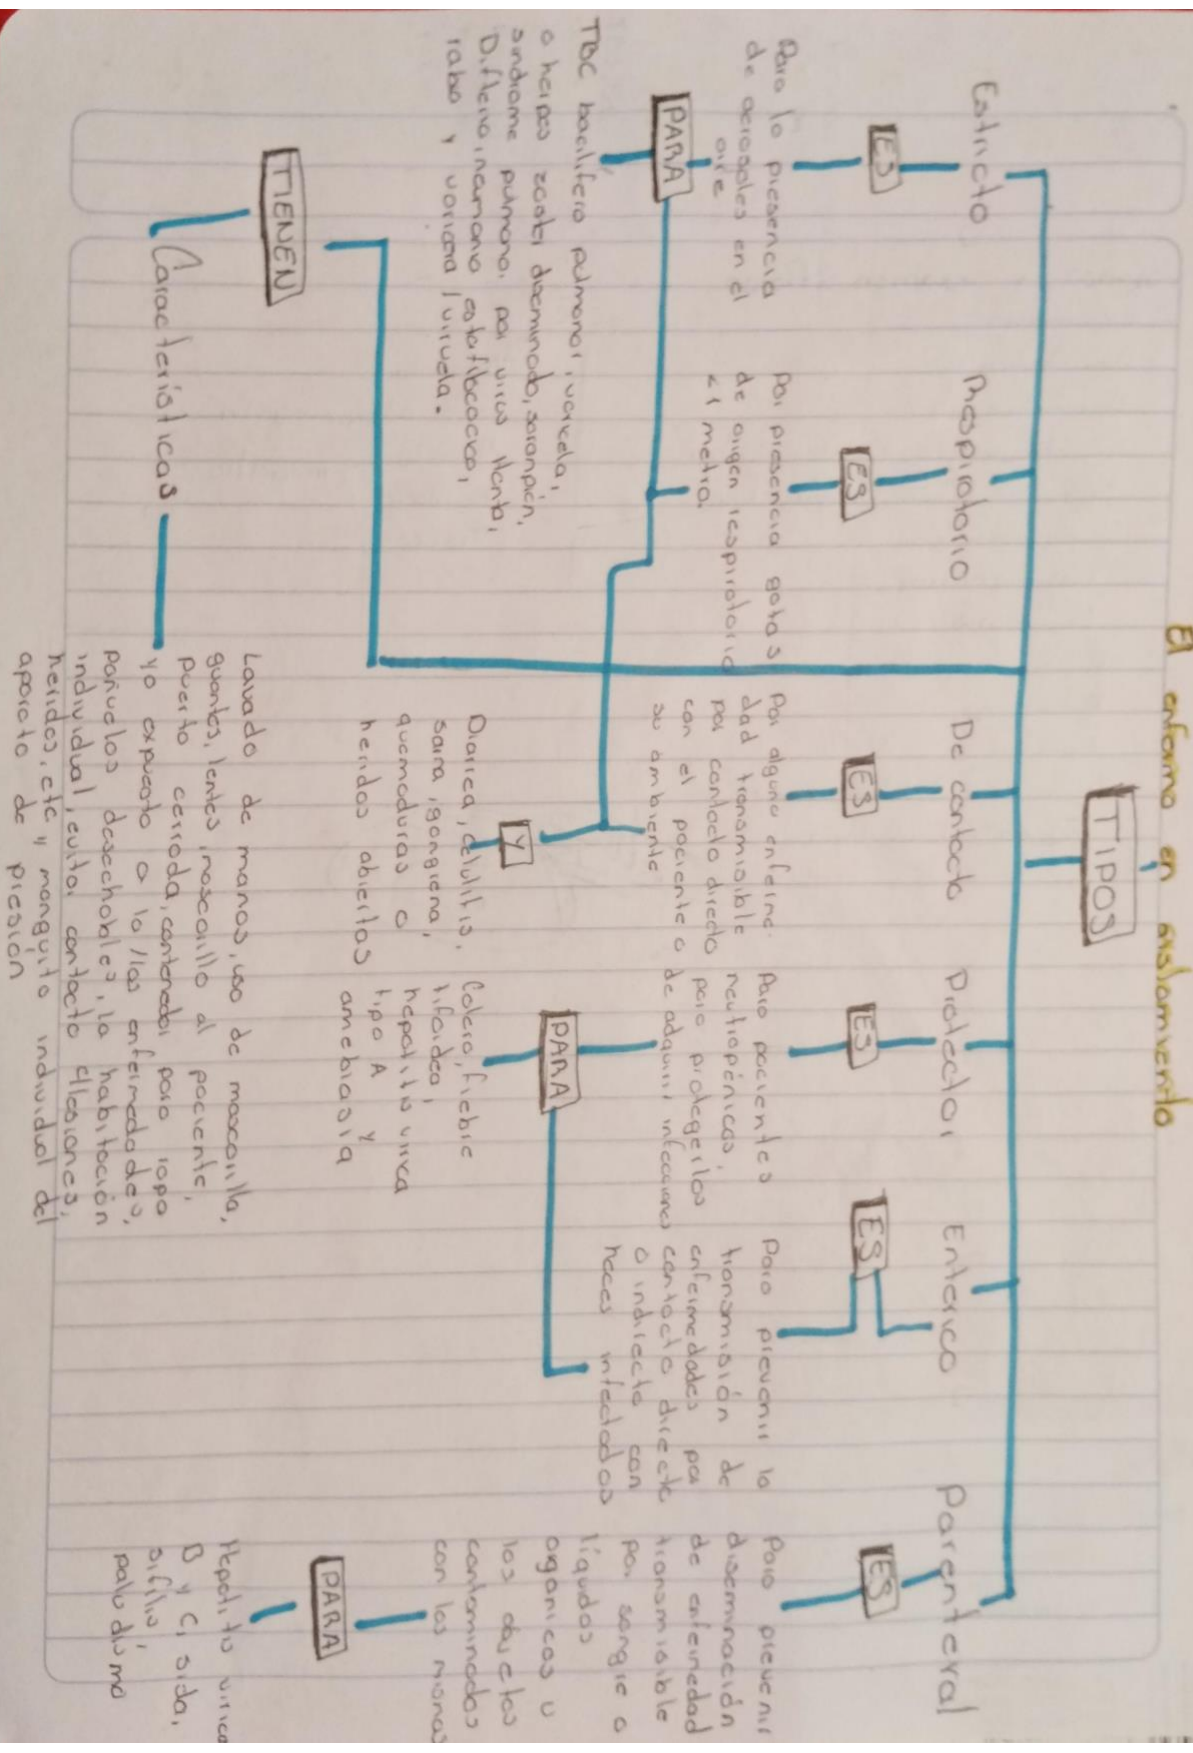 El enfermo en aislamiento
TIPOS
Estricto
ES
Para la presencia
de aerosoles en el
aire
PARA
TBC bacilifera pulmonar, varicela,
o herpes zoster diseminado, sarampión,
sindrome pulmonar por virus Hanta,
Difteria, neumonia estafilococica,
rabia y varicela / viruela.
Respiratorio
ES
Por presencia gotas
de origen respiratorio
<1 metro.
De contacto
ES
Por alguna enferme-
dad transmisible
por contacto directo
con el paciente o
su ambiente
Y
Diarrea, celulitis,
sarna, gangrena,
quemaduras o
heridas abiertas
Protector
ES
Para pacientes
neutropénicos,
para protegerlos
de adquirir infecciones
PARA
Colera, fiebre
tifoidea,
hepatitis virica
tipo A y
amebiasia
Enterico
ES
Para prevenir la
transmisión de
enfermedades por
contacto directo
o indirecto con
heces infectadas
Parenteral
ES
Para prevenir
diseminación
de enfermedad
transmisible
por sangre o
liquidos
organicos u
los objetos
contaminados
con los mismos
PARA
Hepatitis virica
B y C, sida,
sifilis,
paludismo
TIENEN
Características
Lavado de manos, uso de mascarilla,
guantes, lentes, mascarilla al paciente,
puerta cerrada, contenedor para ropa
ya expuesta a la/las enfermedades,
pañuelos desechables, la habitación
individual, evitar contacto lesiones,
heridas, etc y manguito individual del
aparato de presión